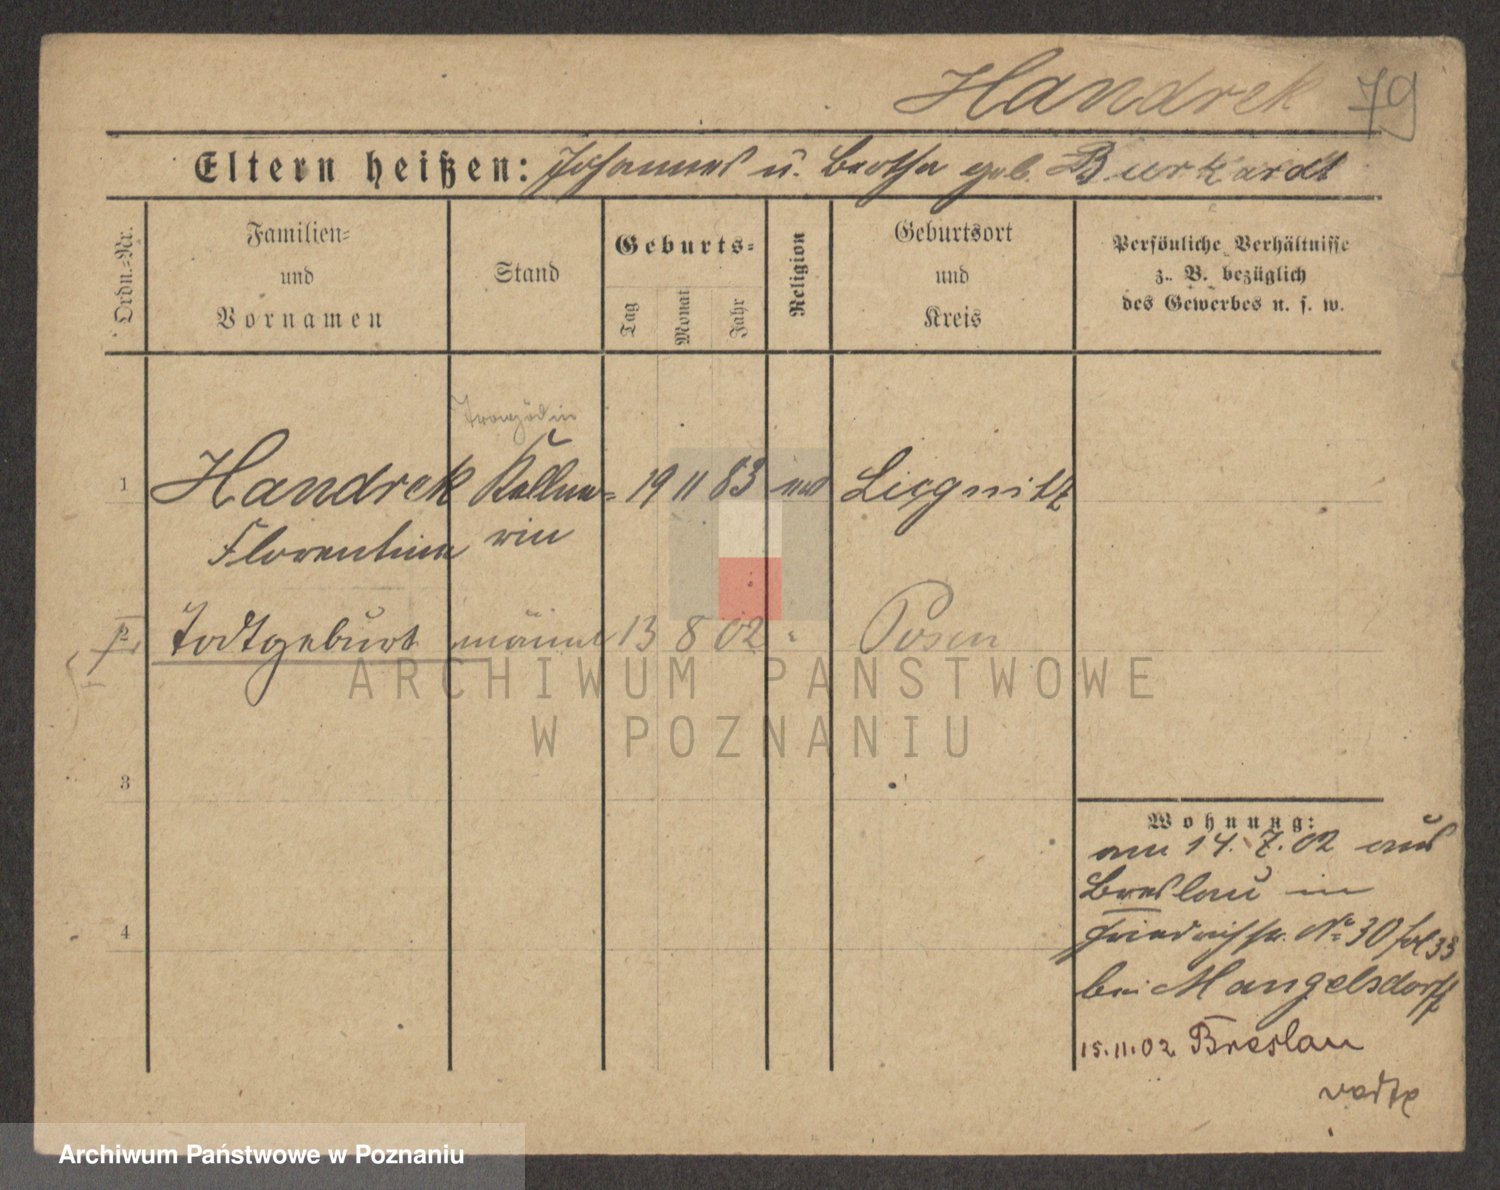 Handrek 79
Eltern heißen: Johannes u. Bertha geb. Burkhardt
Ordn.-Nr.
Familien-
und
Vornamen
Stand
Geburts-
Tag
Monat
Jahr
Religion
Geburtsort
und
Kreis
Persönliche Verhältnisse
z. B. bezüglich
des Gewerbes u. s. w.
1 Handrek Kellne- 19 11 83 Liegnitz
Florentine rin
2 Todtgeburt männl 13 8 02 " Posen
ARCHIWUM PAŃSTWOWE
W POZNANIU
3
4
Wohnung:
am 14.7.02 aus
Breslau in
Friedrichstr. No 30 fol 33
bei Mangelsdorff
15.11.02 Breslau
Archiwum Państwowe w Poznaniu